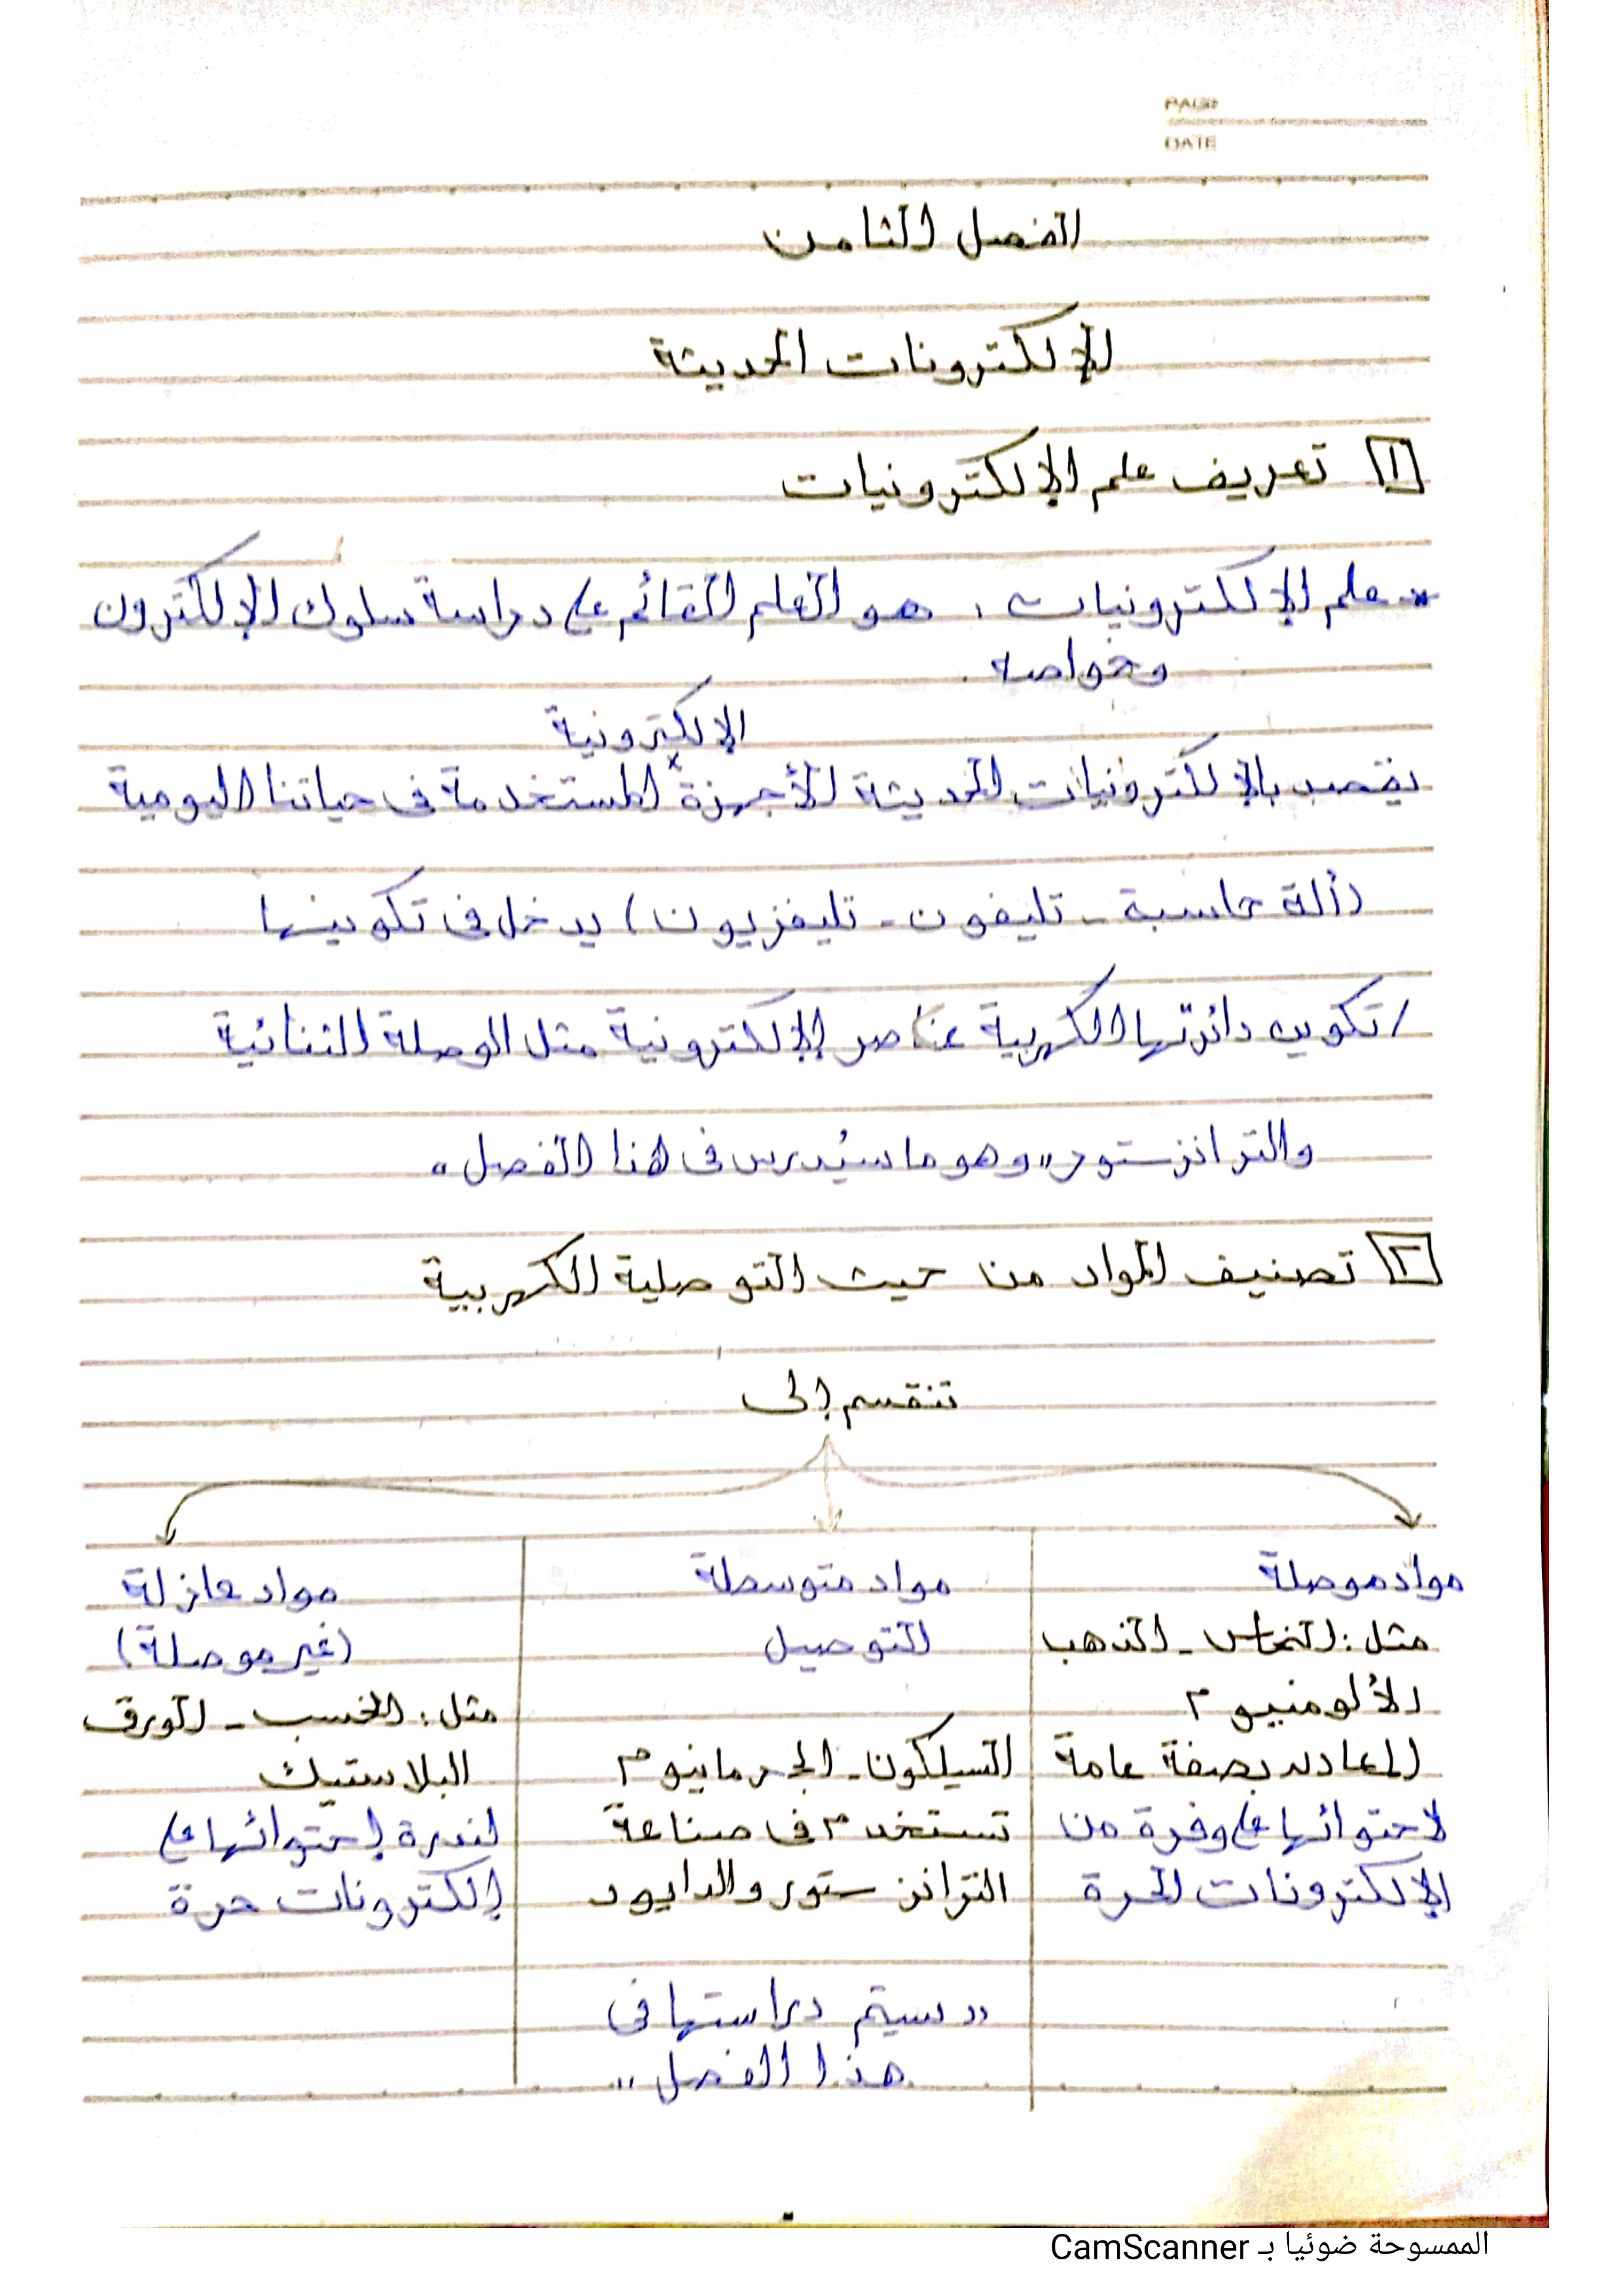 PAGE
DATE
الفصل الثامن
الإلكترونات الحديثة
١ تعريف علم الإلكترونيات
* علم الإلكترونيات : هو العلم القائم على دراسة سلوك الإلكترون
وخواصه .
الإلكترونية
يقصد بالإلكترونيات الحديثة الأجهزة x المستخدمة فى حياتنا اليومية
(ألة حاسبة - تليفون - تليفزيون) يدخل فى تكوينها
/ تكوين دائرتها الكهربية عناصر إلإلكترونية مثل الوصلة الثنائية
والترانزستور "وهو ما سيُدرس فى هذا الفصل"
٢ تصنيف المواد من حيث التوصلية الكهربية
تنقسم إلى
مواد موصلة
مثل : النحاس - الذهب
الألومنيوم
المعادن بصفة عامة
لاحتوائها على وفرة من
الإلكترونات الحرة
مواد متوسطة
التوصيل
السيلكون - الجرمانيوم
تستخدم فى صناعة
الترانزستور والدايود
"سيتم دراستها فى
هذا الفصل"
مواد عازلة
(غير موصلة)
مثل : الخسب - الورق
البلاستيك
لندرة إحتوائها على
إلكترونات حرة
الممسوحة ضوئيا بـ CamScanner